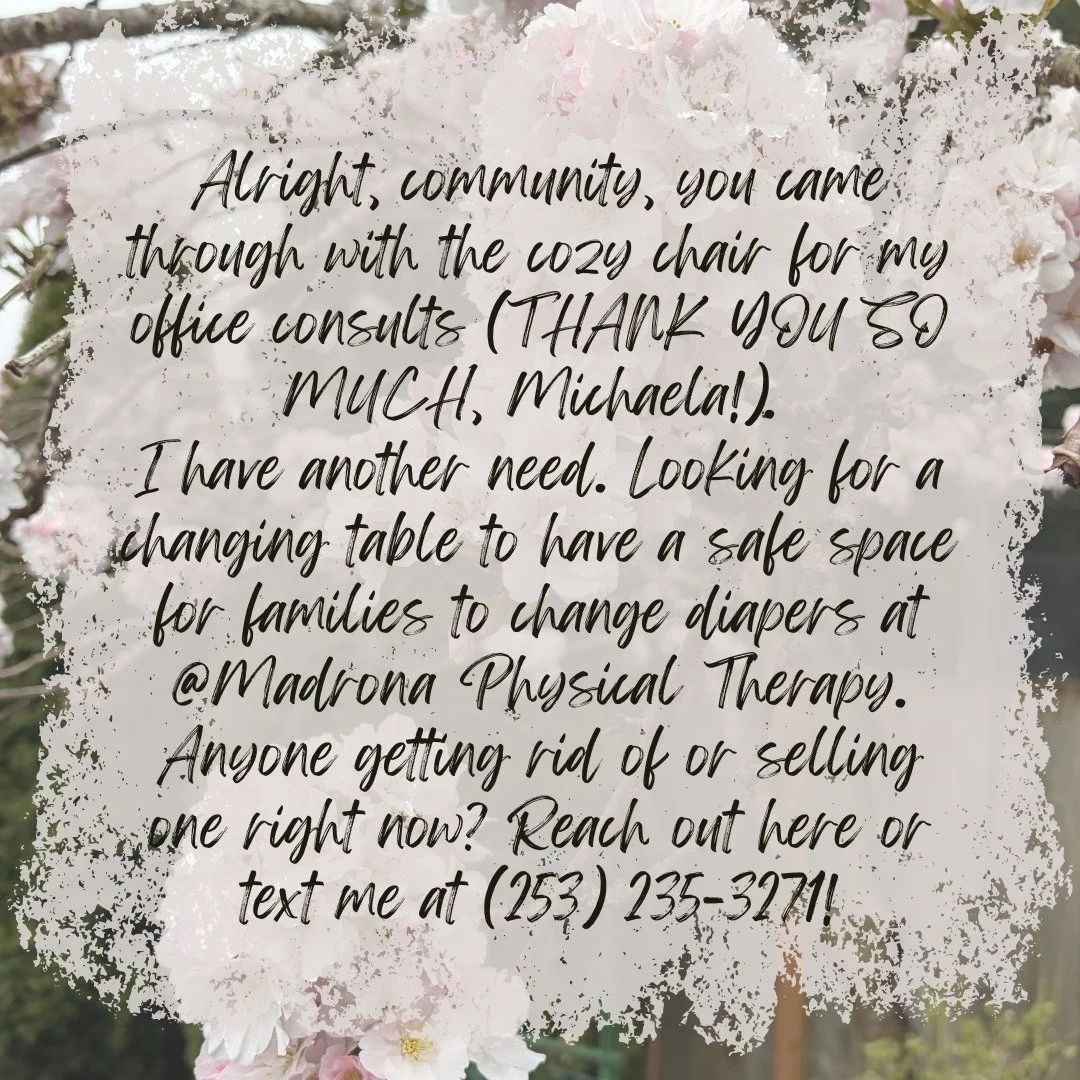 Alright, community, you came
through with the cozy chair for my
office consults (THANK YOU SO
MUCH, Michaela!).
I have another need. Looking for a
changing table to have a safe space
for families to change diapers at
@Madrona Physical Therapy.
Anyone getting rid of or selling
one right now? Reach out here or
text me at (253) 235-3271!